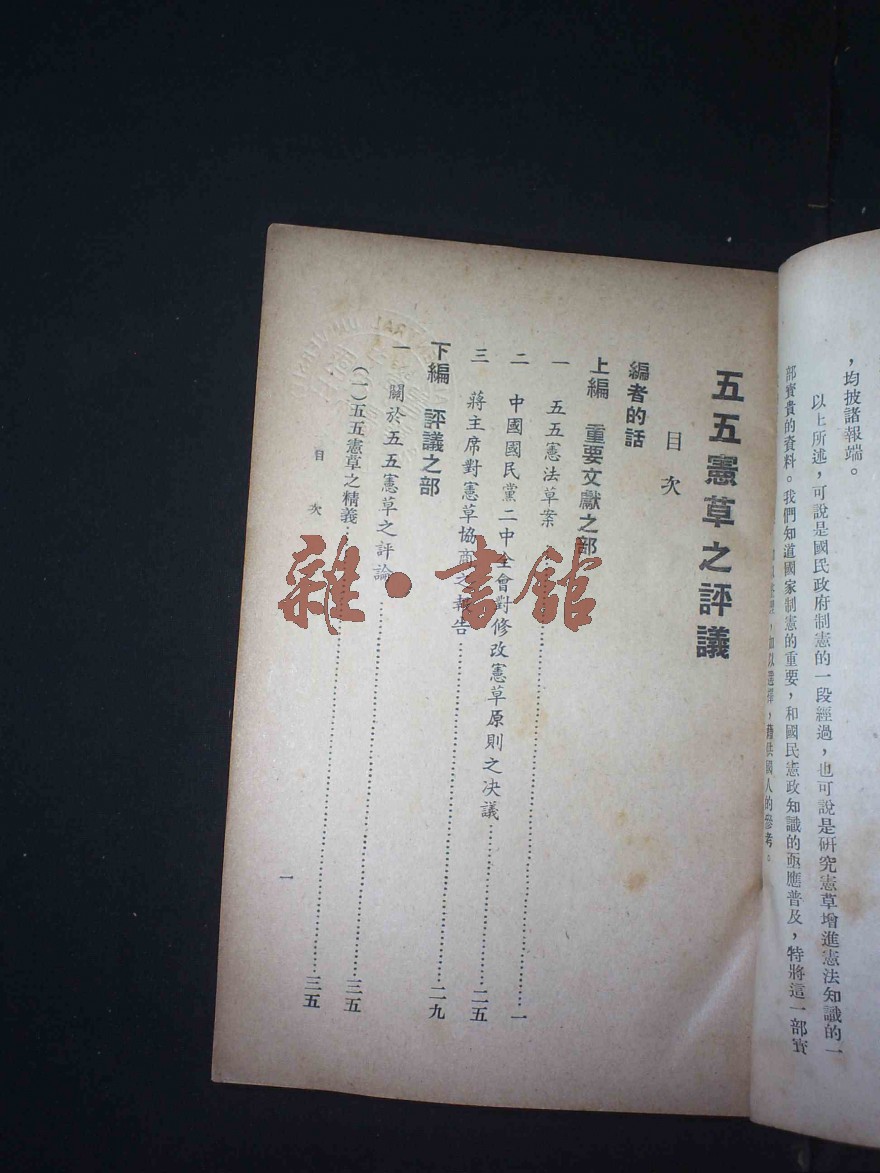 ，均披諸報端。
以上所述，可說是國民政府制憲的一段經過，也可說是研究憲草增進憲法知識的一
部寶貴的資料。我們知道國家制憲的重要，和國民憲政知識的亟應普及，特將這一部寶
加以選擇，藉供國人的參考。
五五憲草之評議
目次
編者的話
上編 重要文獻之部
一 五五憲法草案……一
二 中國國民黨二中全會對修改憲草原則之決議……二五
三 蔣主席對憲草協商之報告……二九
下編 評議之部
一 關於五五憲草之評論……三五
（一）五五憲草之精義……三五
目次
一
雜·書館